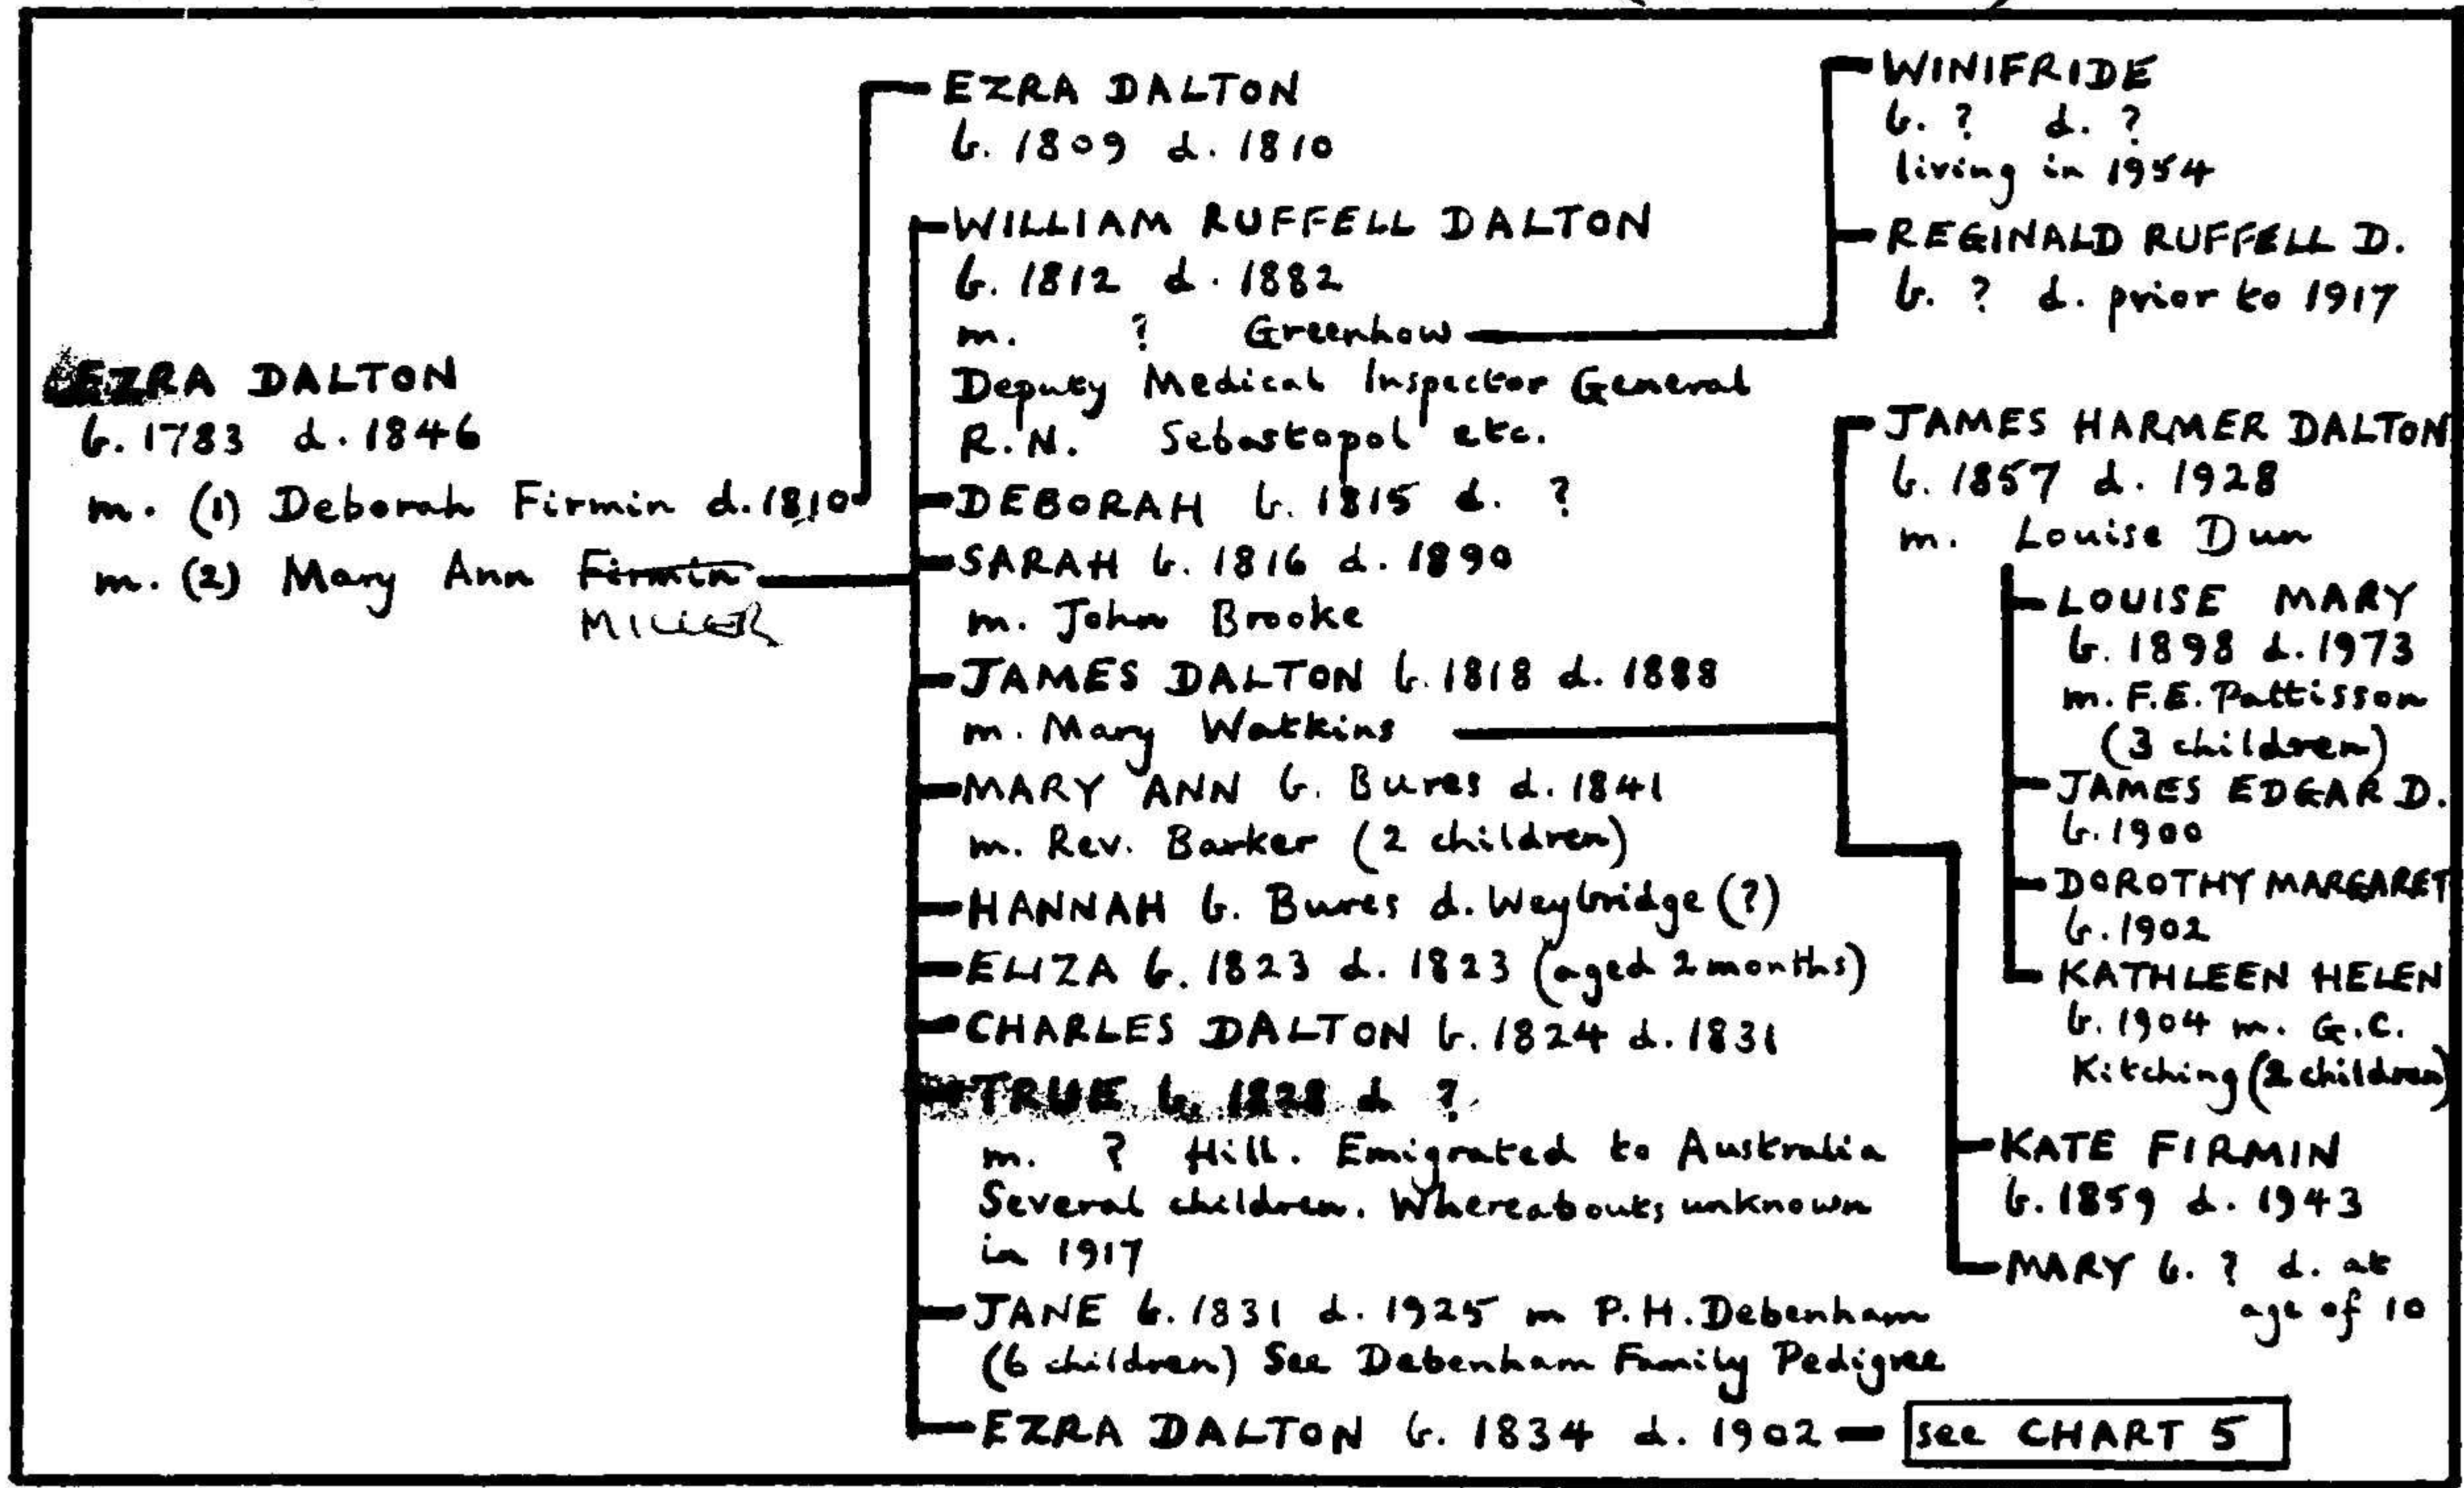 EZRA DALTON
b. 1783 d. 1846
m. (1) Deborah Firmin d. 1810
m. (2) Mary Ann Firmin
MILLER
EZRA DALTON
b. 1809 d. 1810
WILLIAM RUFFELL DALTON
b. 1812 d. 1882
m. ? Greenhow
Deputy Medical Inspector General
R.N. Sebastopol etc.
DEBORAH b. 1815 d. ?
SARAH b. 1816 d. 1890
m. John Brooke
JAMES DALTON b. 1818 d. 1888
m. Mary Watkins
MARY ANN b. Bures d. 1841
m. Rev. Barker (2 children)
HANNAH b. Bures d. Weybridge (?)
ELIZA b. 1823 d. 1823 (aged 2 months)
CHARLES DALTON b. 1824 d. 1831
TRUE b. 1828 d ?
m. ? Hill. Emigrated to Australia
Several children. Whereabouts unknown
in 1917
JANE b. 1831 d. 1925 m P.H. Debenham
(6 children) See Debenham Family Pedigree
EZRA DALTON b. 1834 d. 1902 — see CHART 5
WINIFRIDE
b. ? d. ?
living in 1954
REGINALD RUFFELL D.
b. ? d. prior to 1917
JAMES HARMER DALTON
b. 1857 d. 1928
m. Louise Dun
LOUISE MARY
b. 1898 d. 1973
m. F.E. Pattisson
(3 children)
JAMES EDGAR D.
b. 1900
DOROTHY MARGARET
b. 1902
KATHLEEN HELEN
b. 1904 m. G.C.
Kitching (2 children)
KATE FIRMIN
b. 1859 d. 1943
MARY b. ? d. at
age of 10